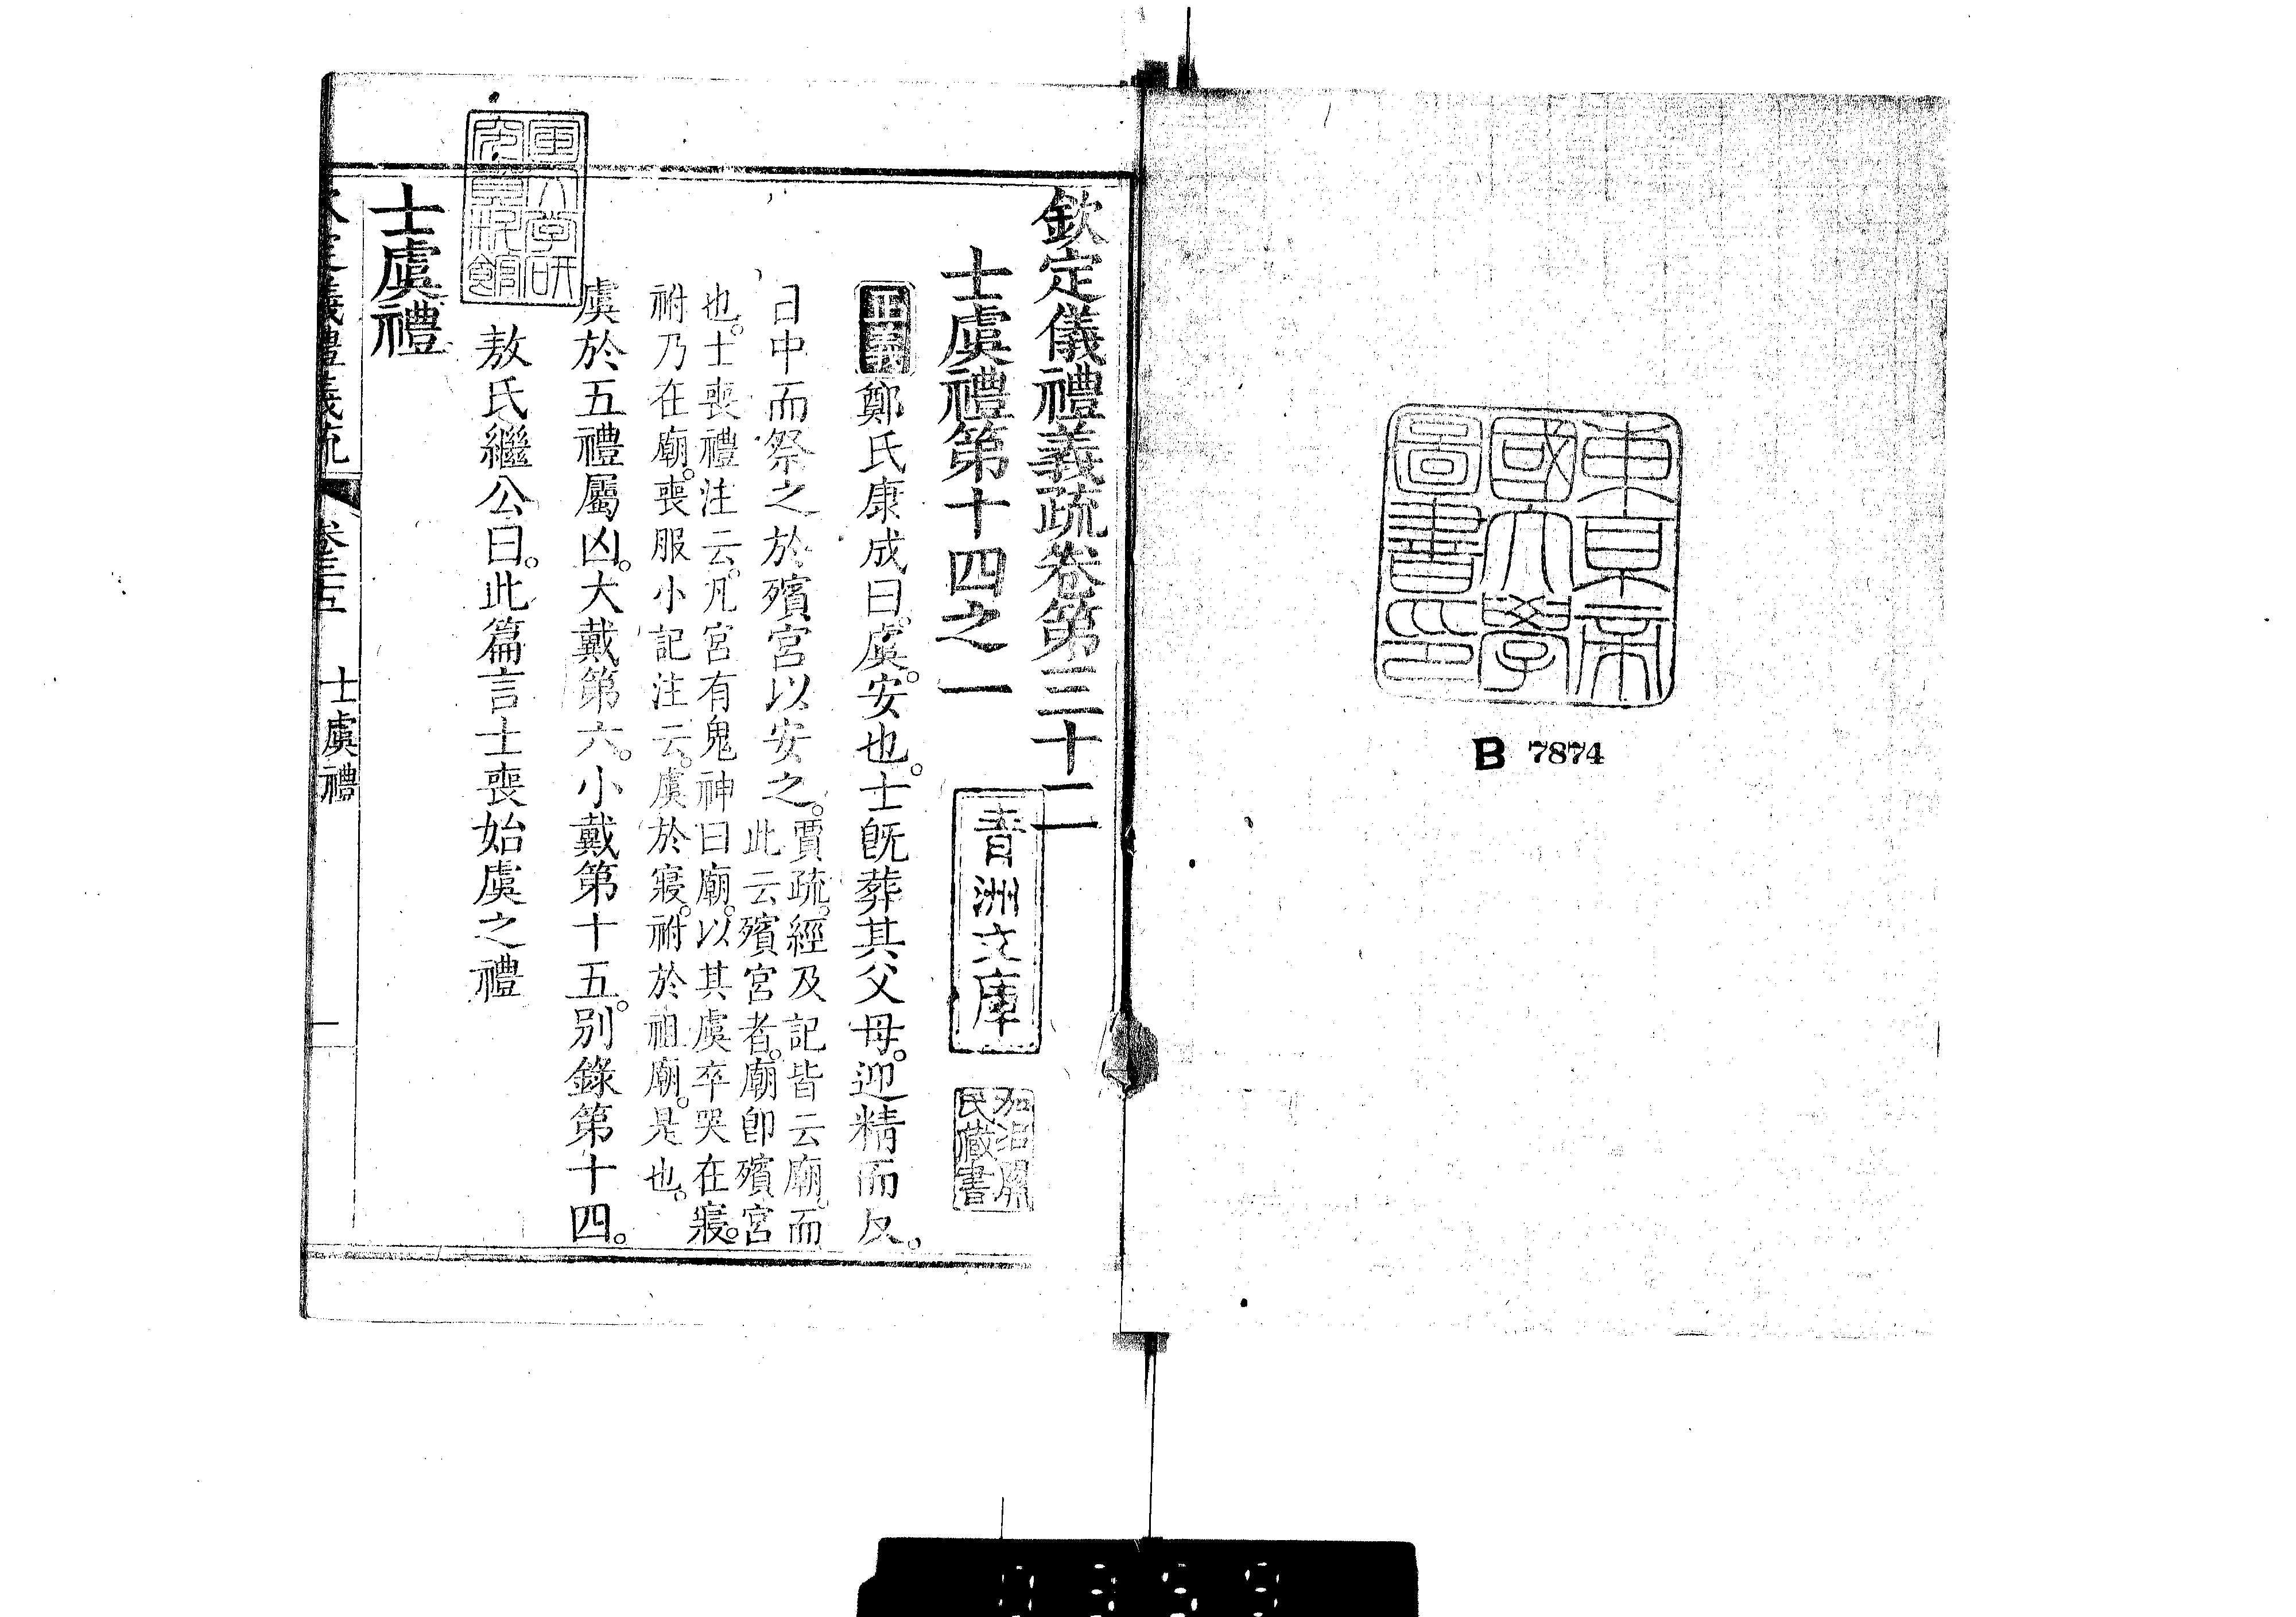 東京帝
國大學
圖書印
B 7874
欽定儀禮義疏卷第三十二
士虞禮第十四之一
青洲文庫
民藏書
正義鄭氏康成曰。虞。安也。士旣葬其父母。迎精而反。
日中而祭之於殯宮以安之。賈疏。經及記皆云廟。而
此云殯宮者。廟卽殯宮
也。士喪禮注云。凡宮有鬼神曰廟。以其虞卒哭在寢。
祔乃在廟。喪服小記注云。虞於寢。祔於祖廟。是也。
虞於五禮屬凶。大戴第六。小戴第十五。別錄第十四。
敖氏繼公曰。此篇言士喪始虞之禮
士虞禮
欽定儀禮義疏 卷三十二 士虞禮 一